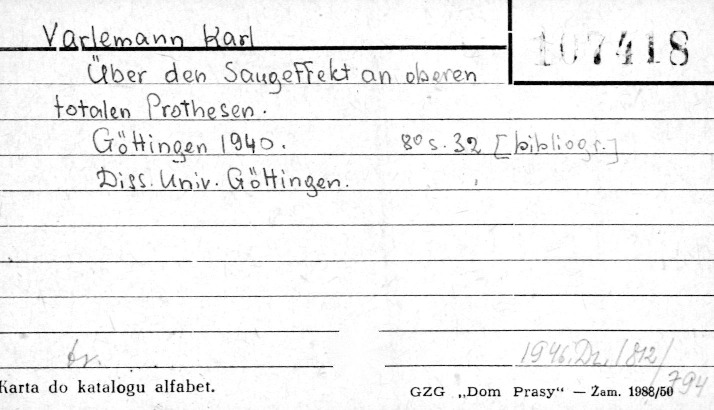 Varlemann Karl
107418
Über den Saugeffekt an oberen
totalen Prothesen.
Göttingen 1940. 8º s. 32 [bibliogr.]
Diss. Univ. Göttingen.
1946.Dr./812/
794
Karta do katalogu alfabet.
GZG „Dom Prasy“ — Zam. 1988/50